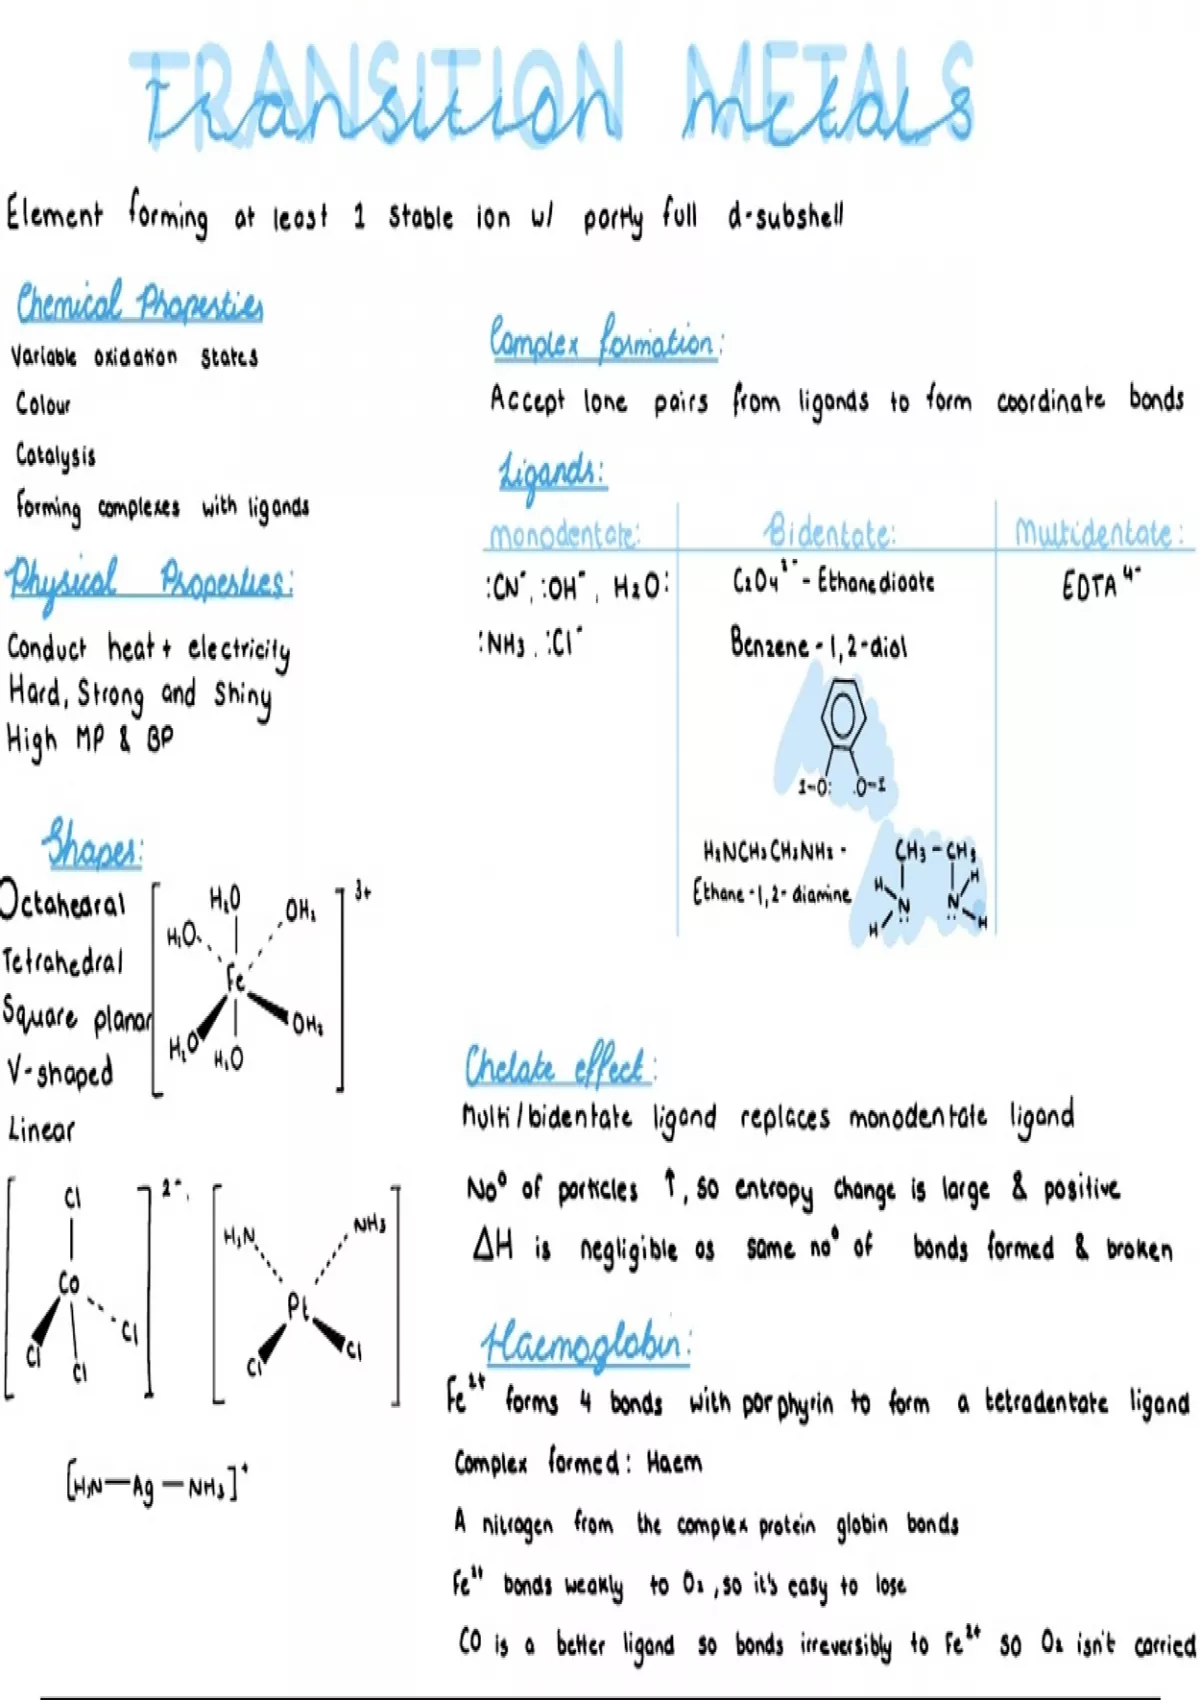 TRANSITION METALS
Transition metals
Element forming at least 1 stable ion w/ partly full d-subshell
Chemical Properties
Variable oxidation states
Colour
Catalysis
forming complexes with ligands
Physical Properties:
Conduct heat + electricity
Hard, Strong and Shiny
High MP & BP
Shapes:
Octahedral
Tetrahedral
Square planar
V-shaped
Linear
3+
H₂O
OH₂
H₂O
Fe
OH₂
H₂O
H₂O
2-
Cl
Co
Cl
Cl
Cl
H₃N
NH₃
Pt
Cl
Cl
[H₃N—Ag—NH₃]⁺
Complex formation:
Accept lone pairs from ligands to form coordinate bonds
Ligands:
monodentate: Bidentate: Multidentate:
:CN⁻, :OH⁻, H₂O: C₂O₄²⁻ - Ethanedioate EDTA⁴⁻
:NH₃, :Cl⁻ Benzene-1,2-diol
I-O: :O-I
H₂NCH₂CH₂NH₂ -
Ethane-1,2-diamine
CH₃-CH₃
H N N H
H H
Chelate effect:
Multi/bidentate ligand replaces monodentate ligand
No⁰ of particles ↑, so entropy change is large & positive
ΔH is negligible as same no⁰ of bonds formed & broken
Haemoglobin:
Fe²⁺ forms 4 bonds with porphyrin to form a tetradentate ligand
Complex formed: Haem
A nitrogen from the complex protein globin bonds
Fe²⁺ bonds weakly to O₂, so it's easy to lose
CO is a better ligand so bonds irreversibly to Fe²⁺ so O₂ isn't carried